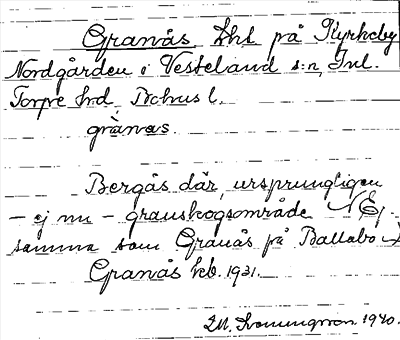 Granås, Lht på Kyrkeby
Nordgården i Vesteland s:n, Inl.
Torpe hrd, Bohus l.
grànas.
Bergås där, ursprungligen
– ej nu – granskogsområde. (Ej
samma som Granås på Ballabo
Granås keb. 1931.
1940.